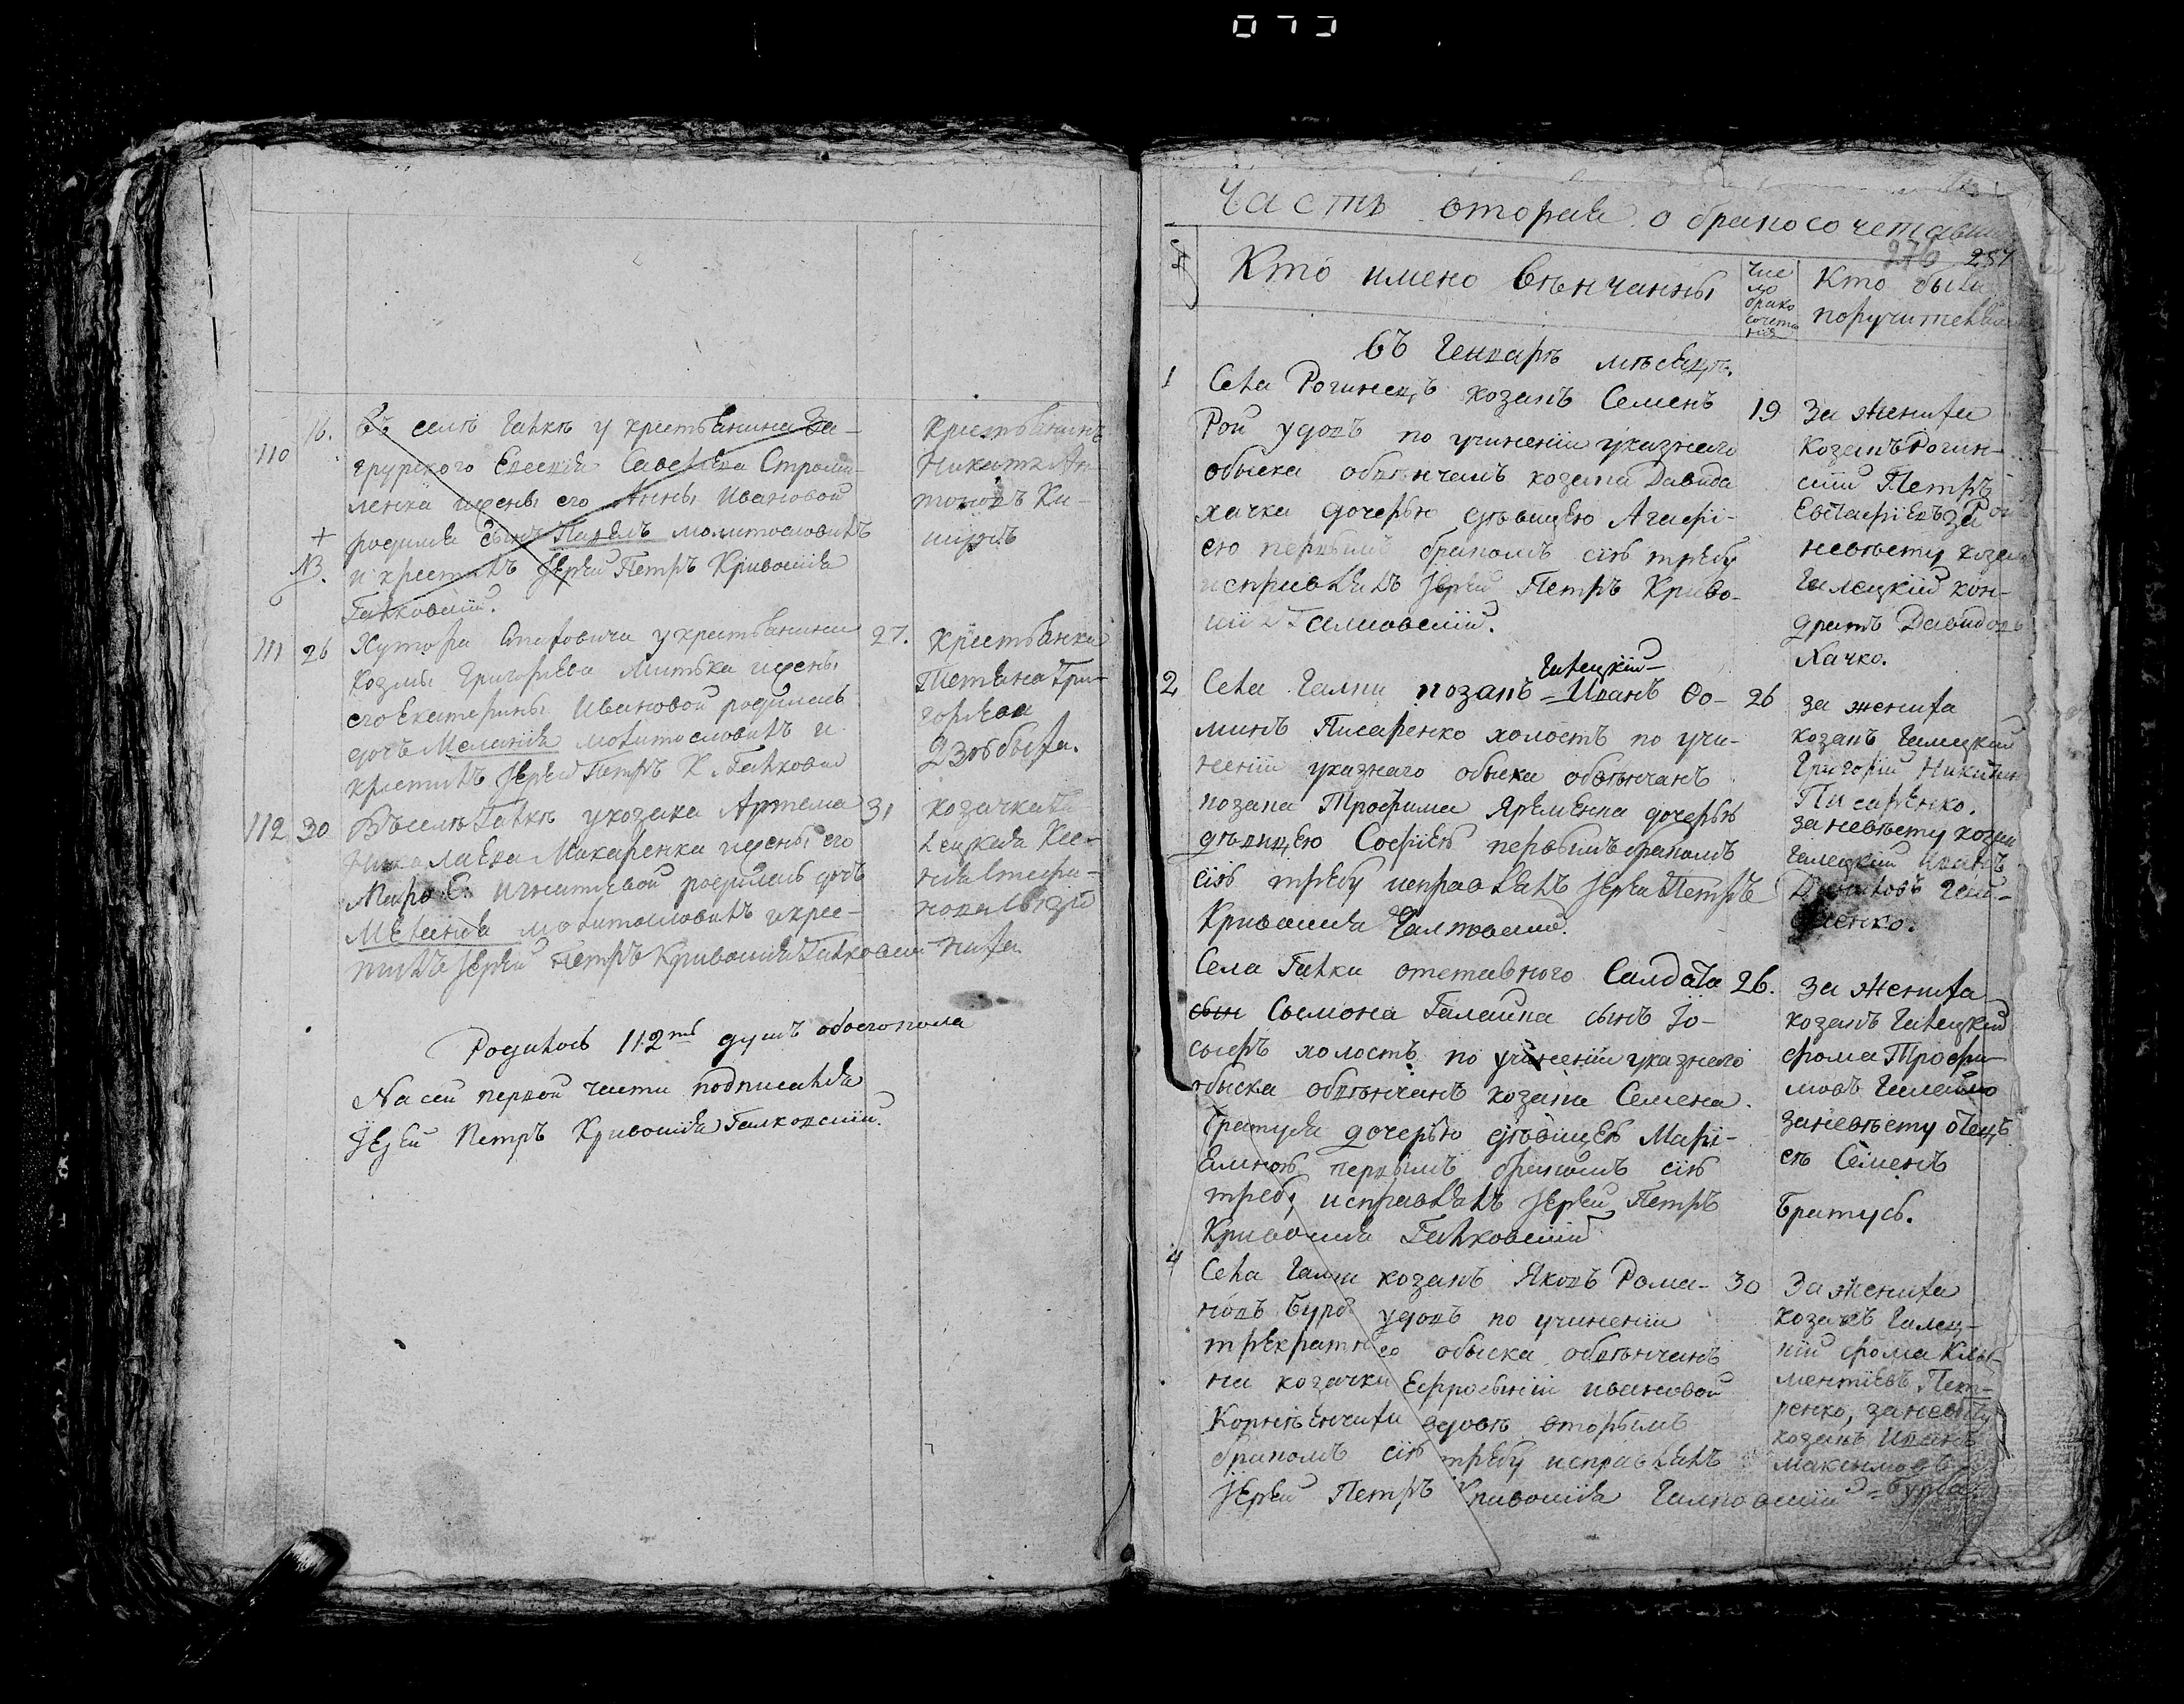 073
110
16.
Въ селѣ Галкѣ у крестьянина За-
грурского Евсевія Савельева Строми-
ленка ижены его Анны Ивановой
родился сынъ Павелъ молитвословилъ
и крестилъ Іерей Петръ Кривошія
Галковскій.
+
NB.
Крестьянинъ
Никита Ан-
тоновъ Ки-
111 26 Хутора Опатовича у крестьянина 27.
Козмы Григорьева Митька ижены
его Екатерины Ивановой родилась
дочь Меланія молитвословилъ и
крестилъ Іерей Петръ К. Галковскій
Крестьянка
Татьяна Гри-
горьева
112 30 Въ селѣ Галкѣ у козака Артема 31
Николаева Макаренка ижены его
Игнатіевой родилась дочь
Меланія молитвословилъ и крес-
тилъ Іерей Петръ Кривошія Галковскій
козачка Га-
лецкая Ксе-
нія Стефа-
нова
Родилось 112ть душъ обоего пола
На сей первой части подписался
Іерей Петръ Кривошія Галковскій.
Часть вторая о бракосочетавши
276 257
Кто имено вѣнчанны
Чис
ло
брако
сочета
нія
Кто были
поручителями
въ Генварѣ мѣсяцѣ.
1 Села Рогинецъ козакъ Семенъ 19
Рой удовъ по учиненіи указнаго
обыска обвѣнчанъ козака Давида
Хачка дочерью дѣвицею Агафі-
ею первымъ бракомъ сію требу
исправлялъ Іерей Петръ Криво-
шія Галковскій.
За жениха
Козакъ Рогин-
скій Петръ
Евстафіевъ Рой
за невѣсту козакъ
Галецкій Кон-
дратъ Давидовъ
Хачко.
Галецкій
2 Села Галки козакъ Иванъ Ѳо- 26
минъ Писаренко холостъ по учи-
неніи указнаго обыска обвѣнчанъ
козака Трофима Яременка дочерью
дѣвицею Софіею первымъ бракомъ
сію требу исправлялъ Іерей Петръ
Кривошія Галковскій.
за жениха
козакъ Галецкій
Григорій Никитинъ
Писаренко.
за невѣсту козакъ
Галецкій Иванъ
Села Галки отставного Салдата 26.
сын Сымона Галайка сынъ Іо-
сыфъ холостъ по учиненіи указнаго
обыска обвѣнчанъ козака Семена
Братуся дочерью дѣвицею Марі-
амною первымъ бракомъ сію
требу исправлялъ Іерей Петръ
Кривошія Галковскій
за жениха
козакъ Галецкій
Фома Трофи-
мовъ Галайко
за невѣсту отецъ
еѣ Семенъ
Братусь.
4 Села Галки козакъ Яковъ Рома- 30
новъ Бурба удовъ по учиненіи
трекратнаго обыска обвѣнчанъ
на козачки Ефросыніи Ивановой
Корнѣенчиха вдовѣ вторымъ
бракомъ сію требу исправлялъ
Іерей Петръ Кривошія Галковскій
За жениха
козакъ Галец-
кій Фома Кли-
ментіевъ Пет-
ренко, за невѣсту
козакъ Иванъ
Максимовъ
Бурба.